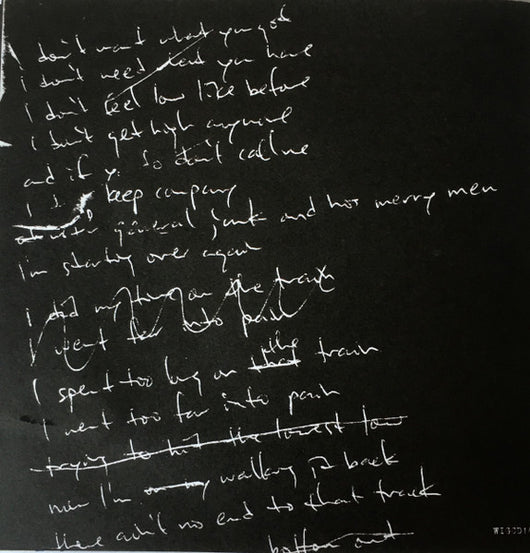 I don't want what you got
I don't need what you have
I don't feel low like before
I don't get high anymore
and if y. So don't call me
I keep company
with general junk and his merry men
I'm starting over again
I did my time on the train
I went far into pain
I spent too long on that the train
I went too far into pain
trying to hit the lowest low
now I'm on my walking it back
there ain't no end to that track
bottom out
WIGCD1